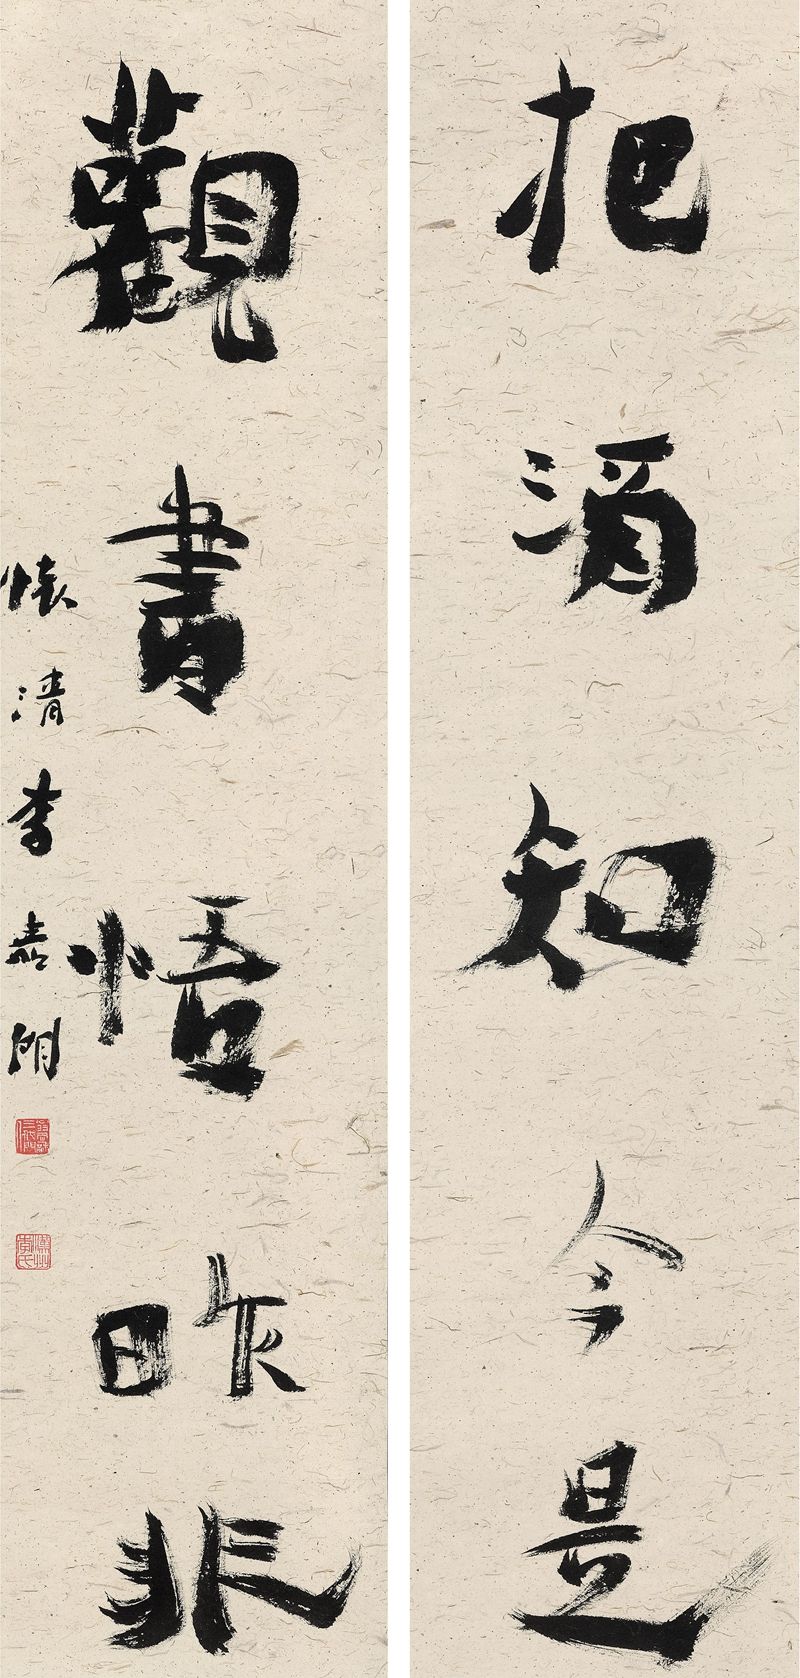 把酒知今是
觀書悟昨非
懷清李嘉開